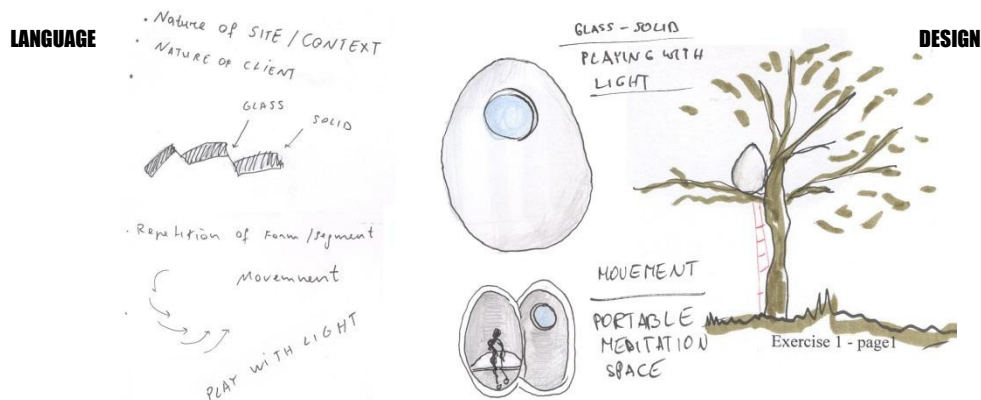 LANGUAGE
DESIGN
• Nature of SITE/CONTEXT
• NATURE OF CLIENT
•
GLASS
SOLID
• Repetition of Form/segment
Movemnent
•
PLAY WITH LIGHT
GLASS - SOLID
PLAYING WITH
LIGHT
MOVEMENT
PORTABLE
MEDITATION
SPACE
Exercise 1 - page1